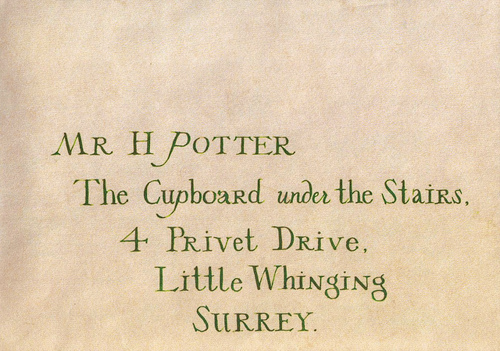 Mr H Potter
The Cupboard under the Stairs,
4 Privet Drive,
Little Whinging
Surrey.